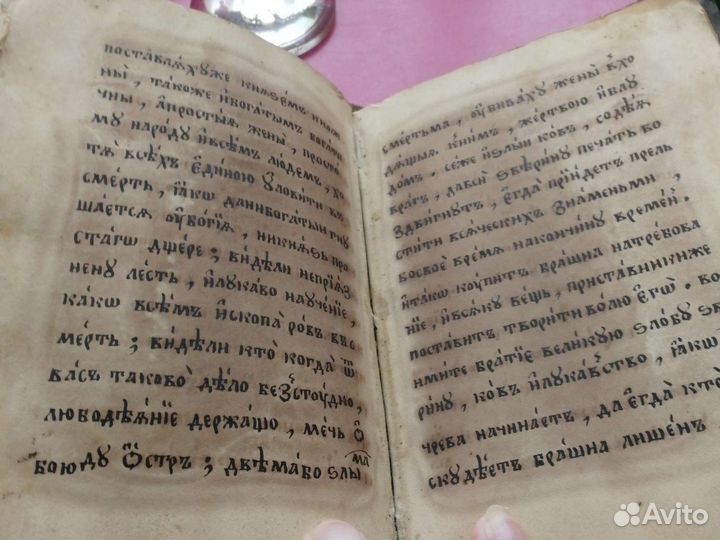 поставлѧхꙋже кнѧземъ кнѧги
ны̀, та́коже и҆бога́тымъ богаты
чны̀, а҆простыѧ жены̀, просто
мꙋ наро́дꙋ и҆всѣ́мъ лю́демъ, хо
тѧ̀ всѣ́хъ є҆ди́ною ᲂу҆лови́ти въ
сме́рть, ꙗ҆́кѡ да нибога́тый гнꙋ
ша́етсѧ ᲂу҆бо́гїѧ, никнѧ́зь про
ста́гѡ дще́ре; ви́дѣли непрїѧ́з
ненꙋ ле́сть, и҆лꙋка́во наꙋче́нїе,
ка́кѡ всѣ́мъ и҆скопа̀ ро́въ въсъ
ме́рть; ви́дѣли кто̀ когда̀ ѿ
ва́съ таково̀ дѣ́ло безстꙋ́дно,
любодѣѧ́нїе держа́що, ме́чь ѻ҆
бою́дꙋ ѻ҆́стръ; двѣма́бо ѕлы́ма
сме́ртьма, ᲂу҆бива́хꙋ жены̀ в̾хо
дѧ́щыѧ к̾ни́мъ, же́ртвою и҆блꙋ
до́мъ. се́же и҆ѕлы́и ко́въ, содѣ́ѧ
вра́гъ, дабы̀ ѕвѣ́ринꙋ печа́ть во
здви́гнꙋтъ, є҆гда̀ прїи́детъ прель
сти́ти всѧ́ческихъ зна́меньми,
во своѐ вре́мѧ наконч́инꙋ време́н.
и҆та́кѡ кꙋ́питъ бра́шна натре́бова
нїе, и҆всѧ́кꙋ ве́щь, приста́вникиже
поста́витъ твори́ти во́лю є҆гѡ̀. во
ними́те бра́тїе вели́кꙋю ѕло́бꙋ ѕвѣ
ри́нꙋ, ко́въ и҆лꙋка́вство, ꙗ҆́кѡ ѿ
чре́ва начина́етъ, да є҆гда̀ кто̀
скꙋдѣ́етъ бра́шна лише́нъ
Avito